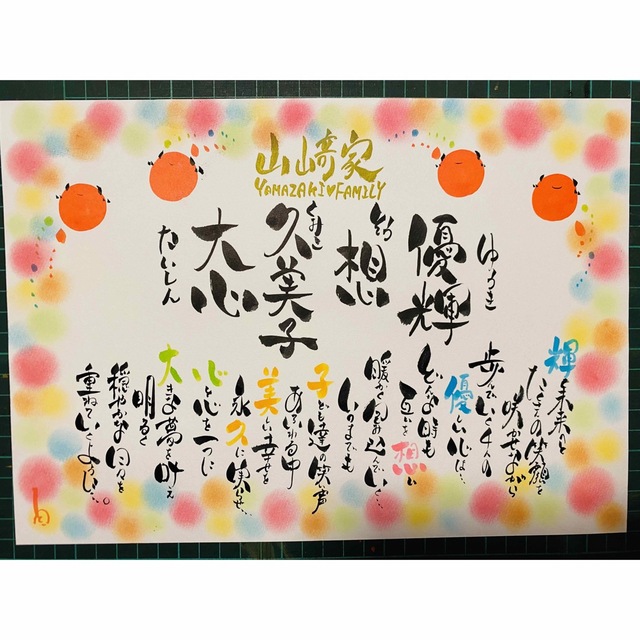 山﨑家
YAMAZAKI♥FAMILY
ゆうき
優輝
想
くみこ
久美子
大心
たいしん
輝く未来へと
たくさんの笑顔を
咲かせながら
歩んでいく4人の
優しい心は…
どんな時も
互いを想い
暖かく包み込んでいく…
いつまでも
子ども達の笑声
あふれる中
美しい幸せを
永久に実らせ…
心と心を一つに
大きな夢を叶え
明るく
穏やかな日々を
重ねていくように…。